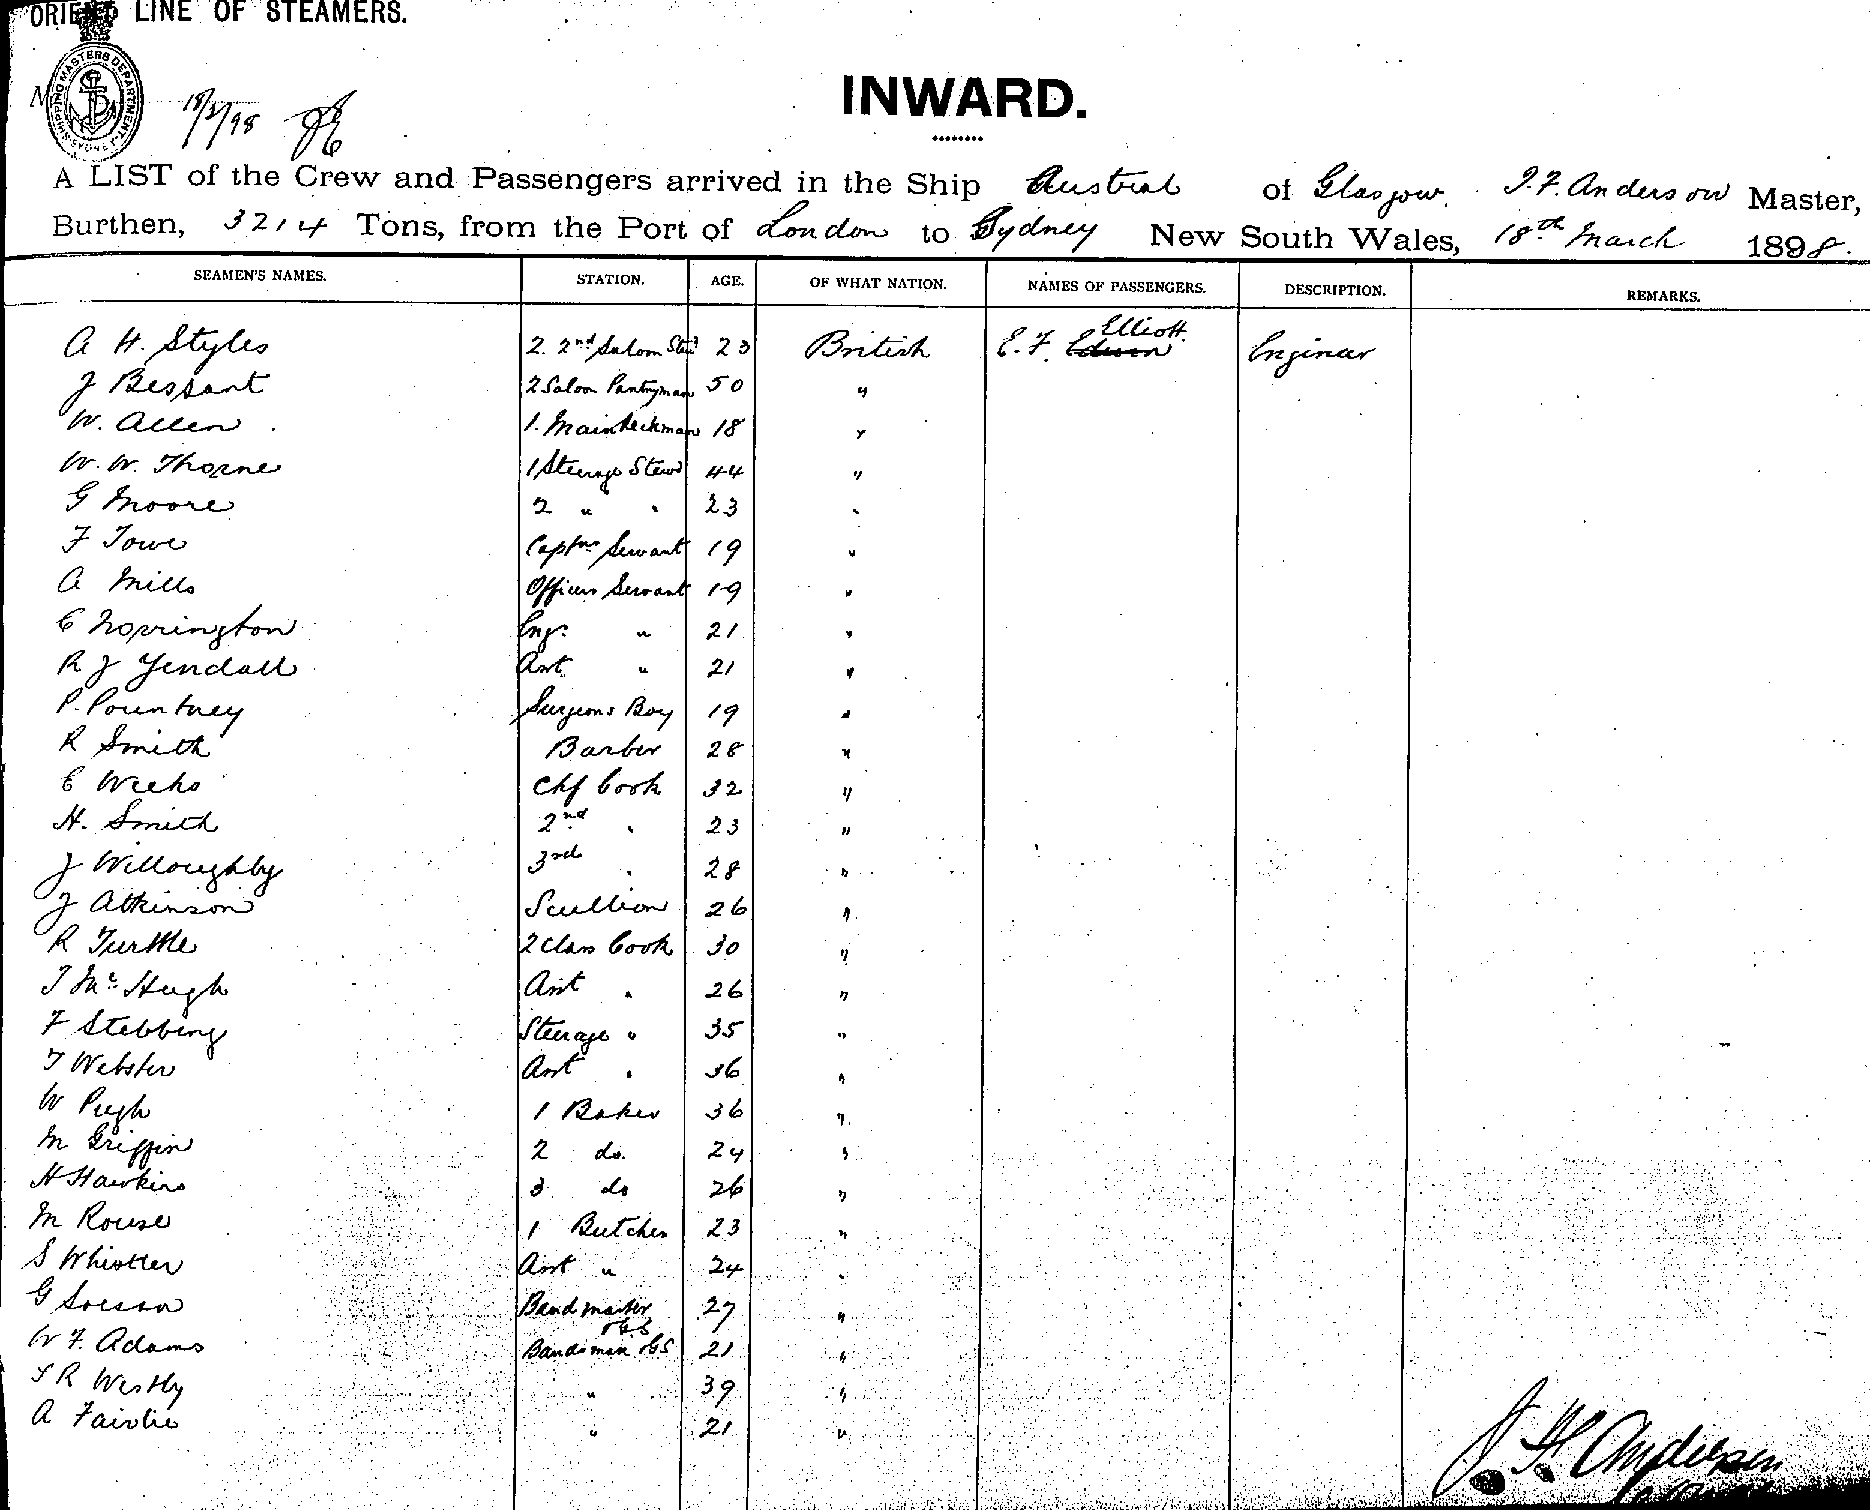 ORIENT LINE OF STEAMERS.
SHIPPING MASTERS DEPARTMENT SYDNEY
18/3/98
INWARD.
A LIST of the Crew and Passengers arrived in the Ship Austral of Glasgow. J. F. Anderson Master,
Burthen, 3214 Tons, from the Port of London to Sydney New South Wales, 18th March 1898.
SEAMEN'S NAMES. STATION. AGE. OF WHAT NATION. NAMES OF PASSENGERS. DESCRIPTION. REMARKS.
A H. Styles 2. 2nd Saloon Stewd 23 British E. F. Elliott. Engineer
J Bessant 2 Saloon Pantryman 50 "
W. Allen 1. Maindeckman 18 "
W. W. Thorne 1 Steerage Stewd 44 "
G Moore 2 " " 23 "
F Towe Captns Servant 19 "
A Mills Officers Servant 19 "
E Norrington Engr. " 21 "
R J Yendall Asst " 21 "
P. Pountney Surgeons Boy 19 "
R Smith Barber 28 "
E Weeks Chf Cook 32 "
H. Smith 2nd " 23 "
J Willoughby 3rd " 28 "
J Atkinson Scullion 26 "
R Turttle 2 Class Cook 30 "
T McHugh Asst " 26 "
F Stebbing Steerage " 35 "
T Webster Asst " 36 "
W Pugh 1 Baker 36 "
M Griffin 2 do. 24 "
H Hawkins 3 do 26 "
M Rouse 1 Butcher 23 "
S Whistler Asst " 24 "
G Bandmaster 27 "
oGS
W F. Adams Bandsman oGS 21 "
T R Westly " 39 "
A Fairlie " 21 "
J. F. Anderson